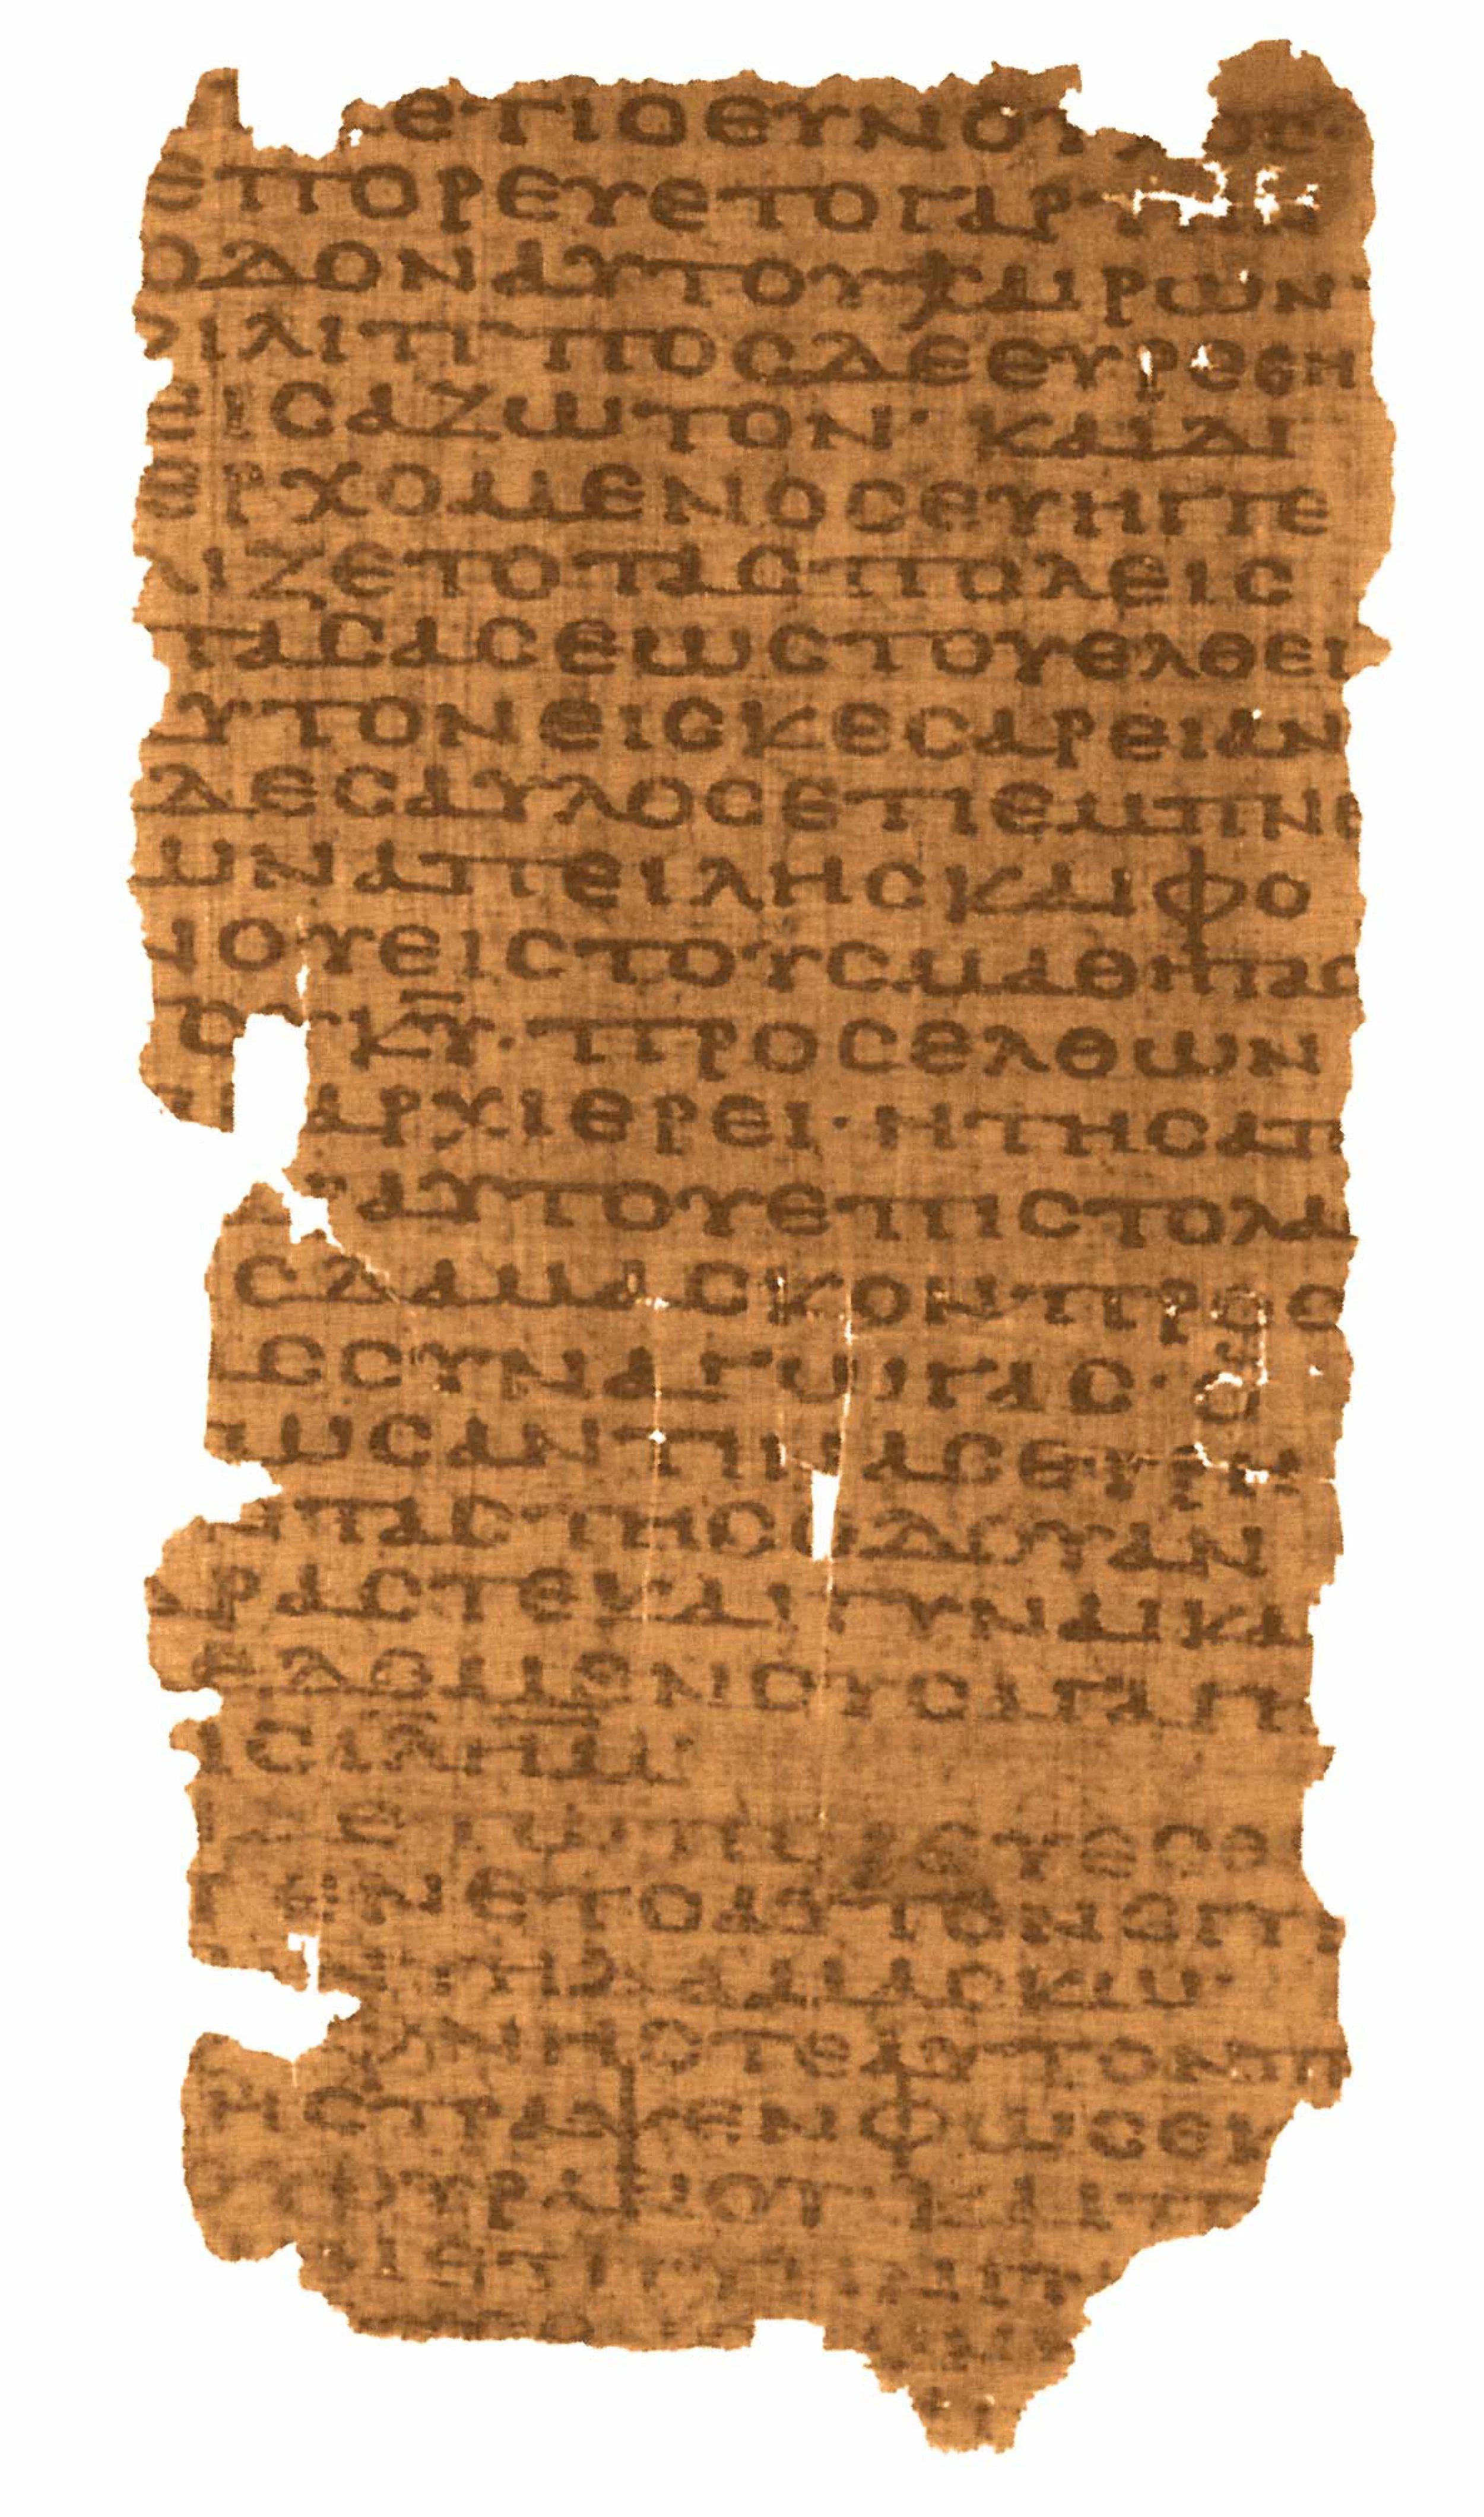 ετιοευνουχος·
επορευετογαρτην
οδοναυτουχαιρων·
φιλιπ'ποσδεευρεθη
εισαζωτον· καιδι
ερχομενοσευηγγε
λιζετοτασπολεις
πασασεωστουελθει
αυτονεισκεσαρειαν
δεσαυλοσετιεμπνε
ωναπειλησκαιφο
νουειστουσμαθητας
του κ̅υ̅· προσελθων
αρχιερει·ητησατ
αυτουεπιστολα
σδαμασκονπρος
ασσυναγωγας· 
ωσαντινασευρη
ντας·τησοδουαν
δραστεκαιγυναικα
δεδεμενουσαγαγη
ισι̅λ̅η̅μ̅·
δετωπορευεσθ
εγενετοαυτονεγγι
ζεντηδαμασκω·
ξεφνηστεαυτονπε
ηστραψενφωσεκ
τουουρανου· καιπ